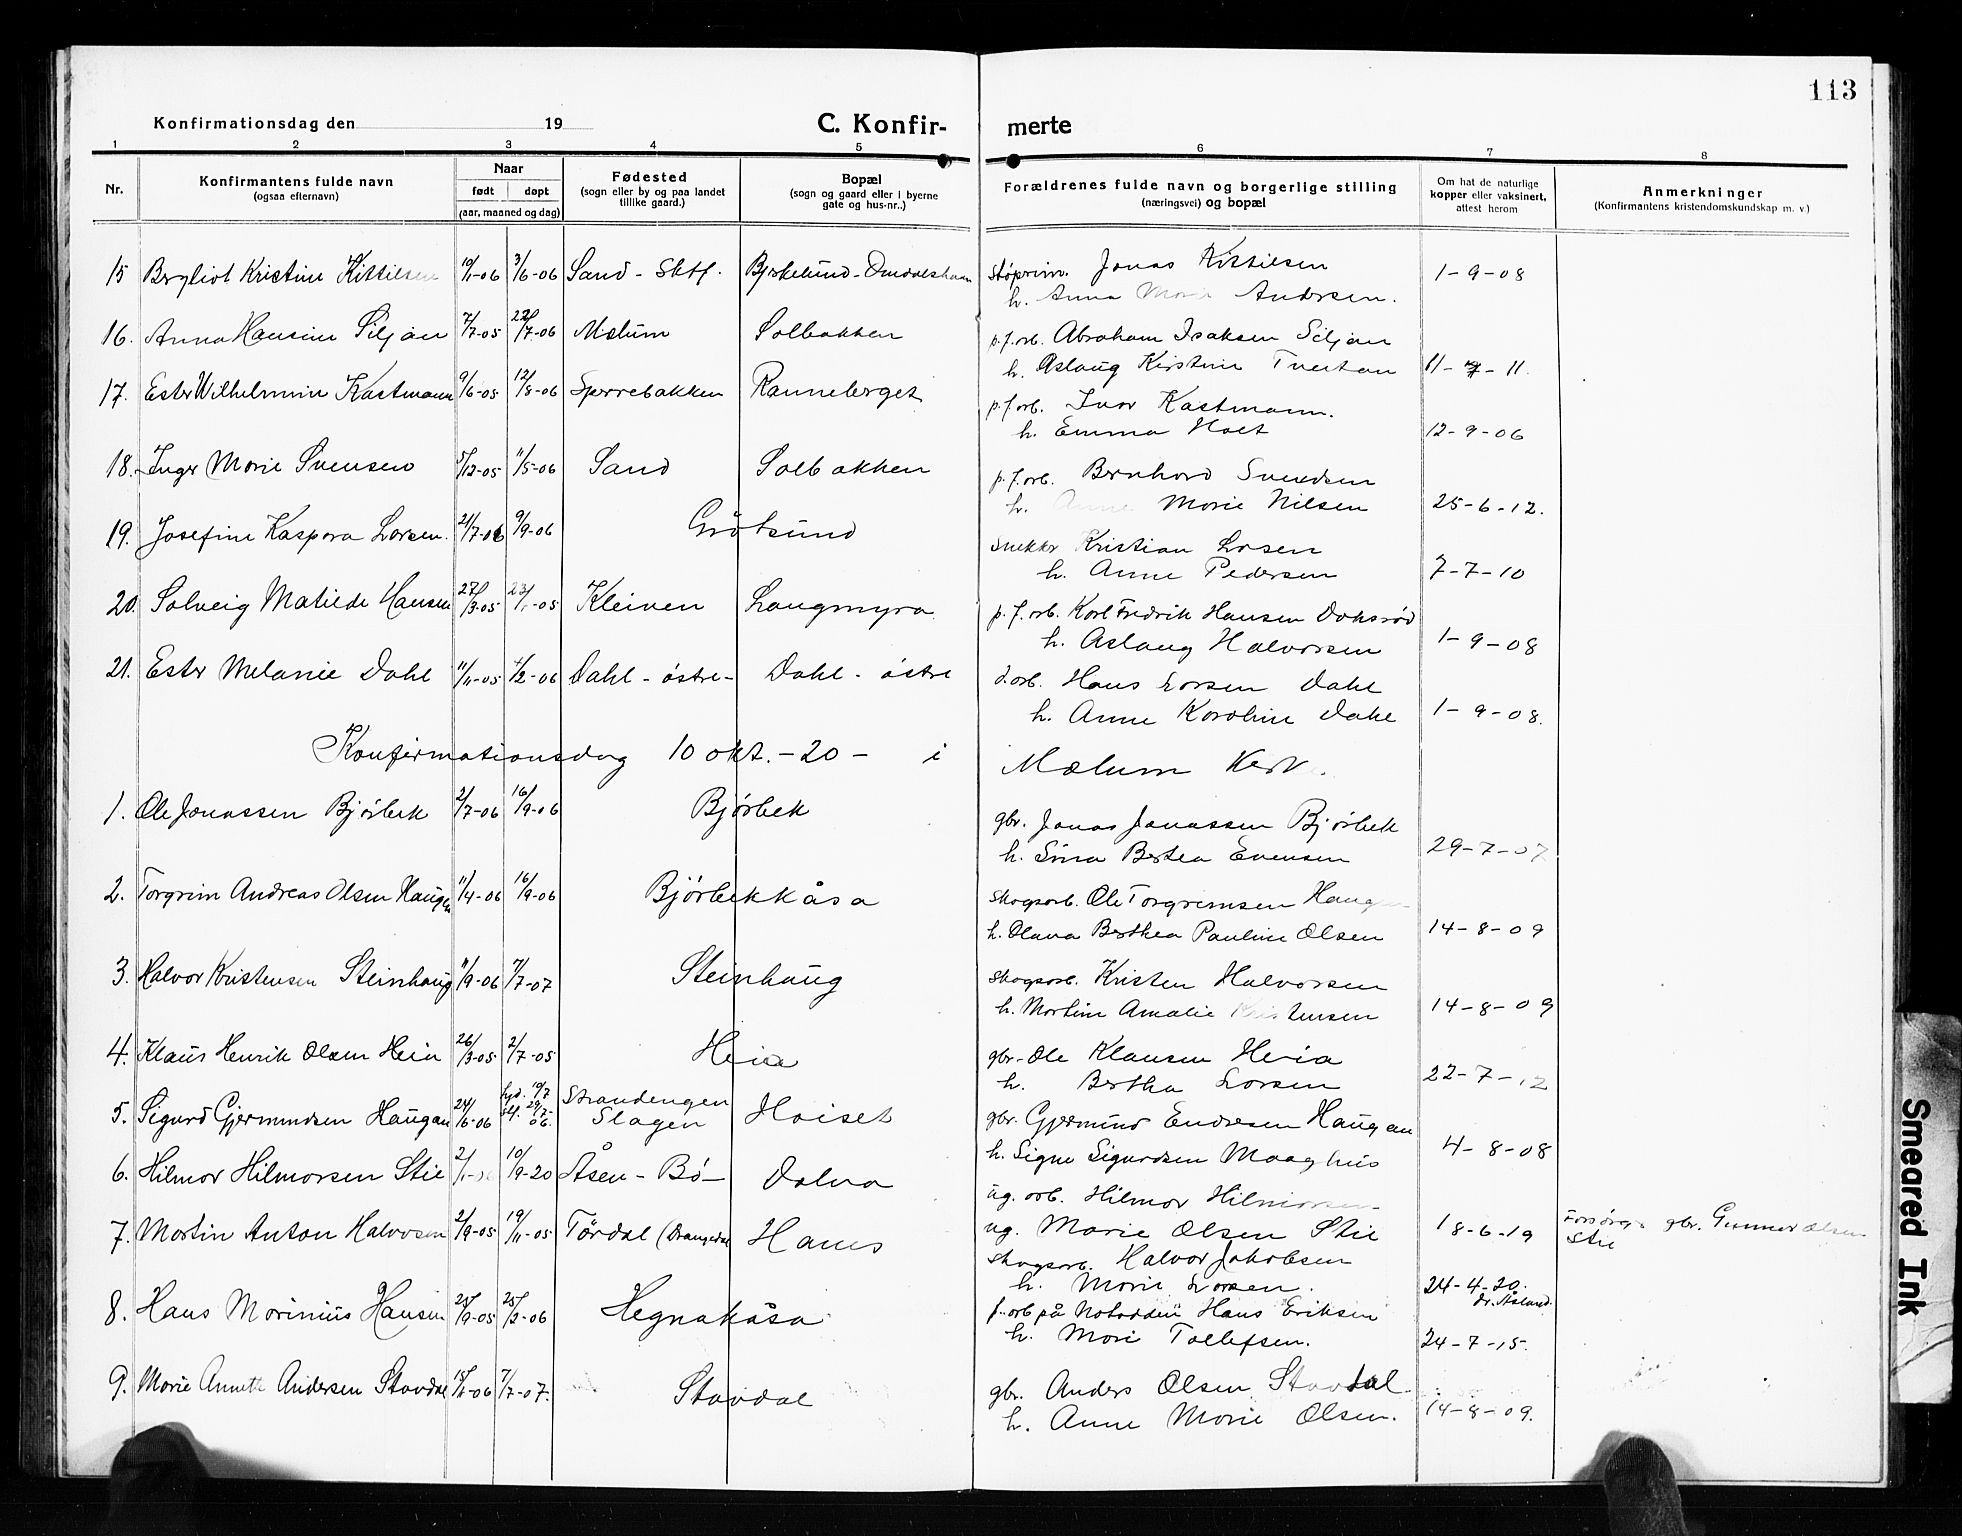 113
Konfirmationsdag den 19
C. Konfirmerte
1 2 3 4 5 6 7 8
Nr.
Konfirmantens fulde navn
(ogsaa efternavn)
Naar
født døpt
(aar, maaned og dag)
Fødested
(sogn eller by og paa landet
tillike gaard.)
Bopæl
(sogn og gaard eller i byerne
gate og hus-nr..)
Forældrenes fulde navn og borgerlige stilling
(næringsvei) og bopæl
Om hat de naturlige
kopper eller vaksinert,
attest herom
Anmerkninger
(Konfirmantens kristendomskundskap m. v.)
15 Bergliot Kristine Kittilsen 3/6-06 Sand - Bjerkelund - Jonas Kittilsen 1-9-08
h. Anna Marie Andersen.
16. Anna Hansine Siljan 7/7-05 22/7-06 Mælum Solbakken p. f. arb. Abraham Isaksen Siljan
h. Aslaug Kirstine Tveitan 11-7-11.
17. Ester Wilhelmine Kastmann 9/6-05 12/8-06 Sperrebakken Ranneberget p. f. arb. Ivar Kastmann.
h. Emma Holt 12-9-06
18. Inger Marie Svensen 5/12-05 1/5-06 Sand Solbakken p. f. arb. Bernhard Svendsen
h. Anne Marie Nilsen 25-6-12.
19. Josefine Kaspara Larsen. 21/7-06 9/9-06 Grøtsund Snekker Kristian Larsen
h. Anne Pedersen 7-7-10
20. Solveig Matilde Hansen 27/3-05 Kleiven Langmyra p. f. arb. Karl Fredrik Hansen Doksrød
h. Aslaug Halvorsen 1-9-08
21. Ester Melanie Dahl 11/11-05 4/2-06 Dahl - østre - Dahl - østre d. arb. Hans Larsen Dahl
h. Anne Karoline Dahl 1-9-08.
Konfirmationsdag 10 okt. - 20 - i Mælum Kirk.
1. Ole Jonassen Bjørbek 2/7-06 16/9-06 Bjørbek gbr. Jonas Jonassen Bjørbek
h. Sina Bertea Evensen 29-7-07
2. Torgrim Andreas Olsen Haugen 11/4-06 16/9-06 Bjørbekkåsa Skogsarb. Ole Torgrimsen Haugen
h. Olava Berthea Pauline Olsen 14-8-09
3. Halvor Kristensen Steinhaug 11/9-06 7/7-07 Steinhaug Skogsarb. Kristen Halvorsen
h. Martine Amalie Kristensen 14-8-09
4. Klaus Henrik Olsen Heia 26/3-05 2/7-05 Heia gbr. Ole Klausen Heia
h. Bertha Larsen 22-7-12
5. Sigurd Gjermundsen Haugan 24/6-06 Strandengen
Slagen Hoiset gbr. Gjermund Endresen Haugan
h. Signe Sigurdsen Maaghus 4-8-08
6. Hilmar Hilmarsen Stie 10/9-20 Åsen - Bø - Dalva ug. arb. Hilmar Hilmarsen
ug. Marie Olsen Stie 18-6-19 Forsørger gbr. Gunnar Olsen
Stie
7. Martin Anton Halvorsen 2/9-05 19/11-05 Tørdal (Drangedal Hanes Skogsarb. Halvor Jakobsen
h. Marie Larsen. 24-4-20.
dr. Åsland.
8. Hans Marinius Hansen 25/9-05 25/2-06 Hegnakåsa f. arb på Notodden Hans Eriksen
h. Mari Tollefsen. 24-7-15.
9. Marie Annette Andersen Stavdal 7/7-07. Stavdal gbr. Anders Olsen Stavdal
h. Anne Marie Olsen. 14-8-09.
Smeared Ink